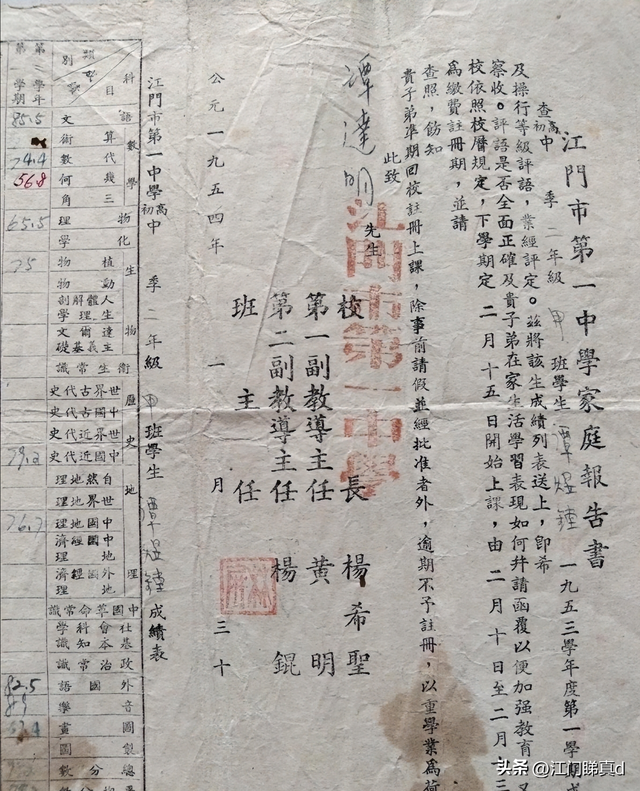 江門市第一中學家庭報告書
查高初中 季二年級甲班學生 一九五三學年度第一學期成
及操行等級評語，業經評定。茲將該生成績列表送上，卽希
察收。評語是否全面正確及貴子弟在家生活學習表現如何幷請函覆以便加强教育。又
校依照校曆規定，下學期定二月十五日開始上課，由二月十日至二月十三
爲繳費註册期，並請
查照，飭知
貴子弟準期回校註册上課，除事前請假並經批准者外，逾期不予註册，以重學業爲荷
此致
達明先生
江門市第一中學
校長 楊希聖
第一副教導主任 黃明
第二副教導主任 楊錕
班主任
公元一九五四年一月三十
江門市第一中學高初中 季二年級甲班學生 成績表
科目 類別
語文
數學 算術 代數 幾何 三角
物理
化學
生物 植物 動物 人體解剖生理學 達爾文主義基礎
衛生常識
歷史 世界古代史 中國古代史 世界近代史 中國近代史
地理 自然地理 世界地理 中國地理 中國經濟地理 外國經濟地理
中國革命常識
社會科學基本知識
政治常識
外國語
音樂
圖畫
製圖
總分數
第二學年第 學期
85.5
74.4
56.8
65.5
75
79.2
82.5
头条 @江門睇真d